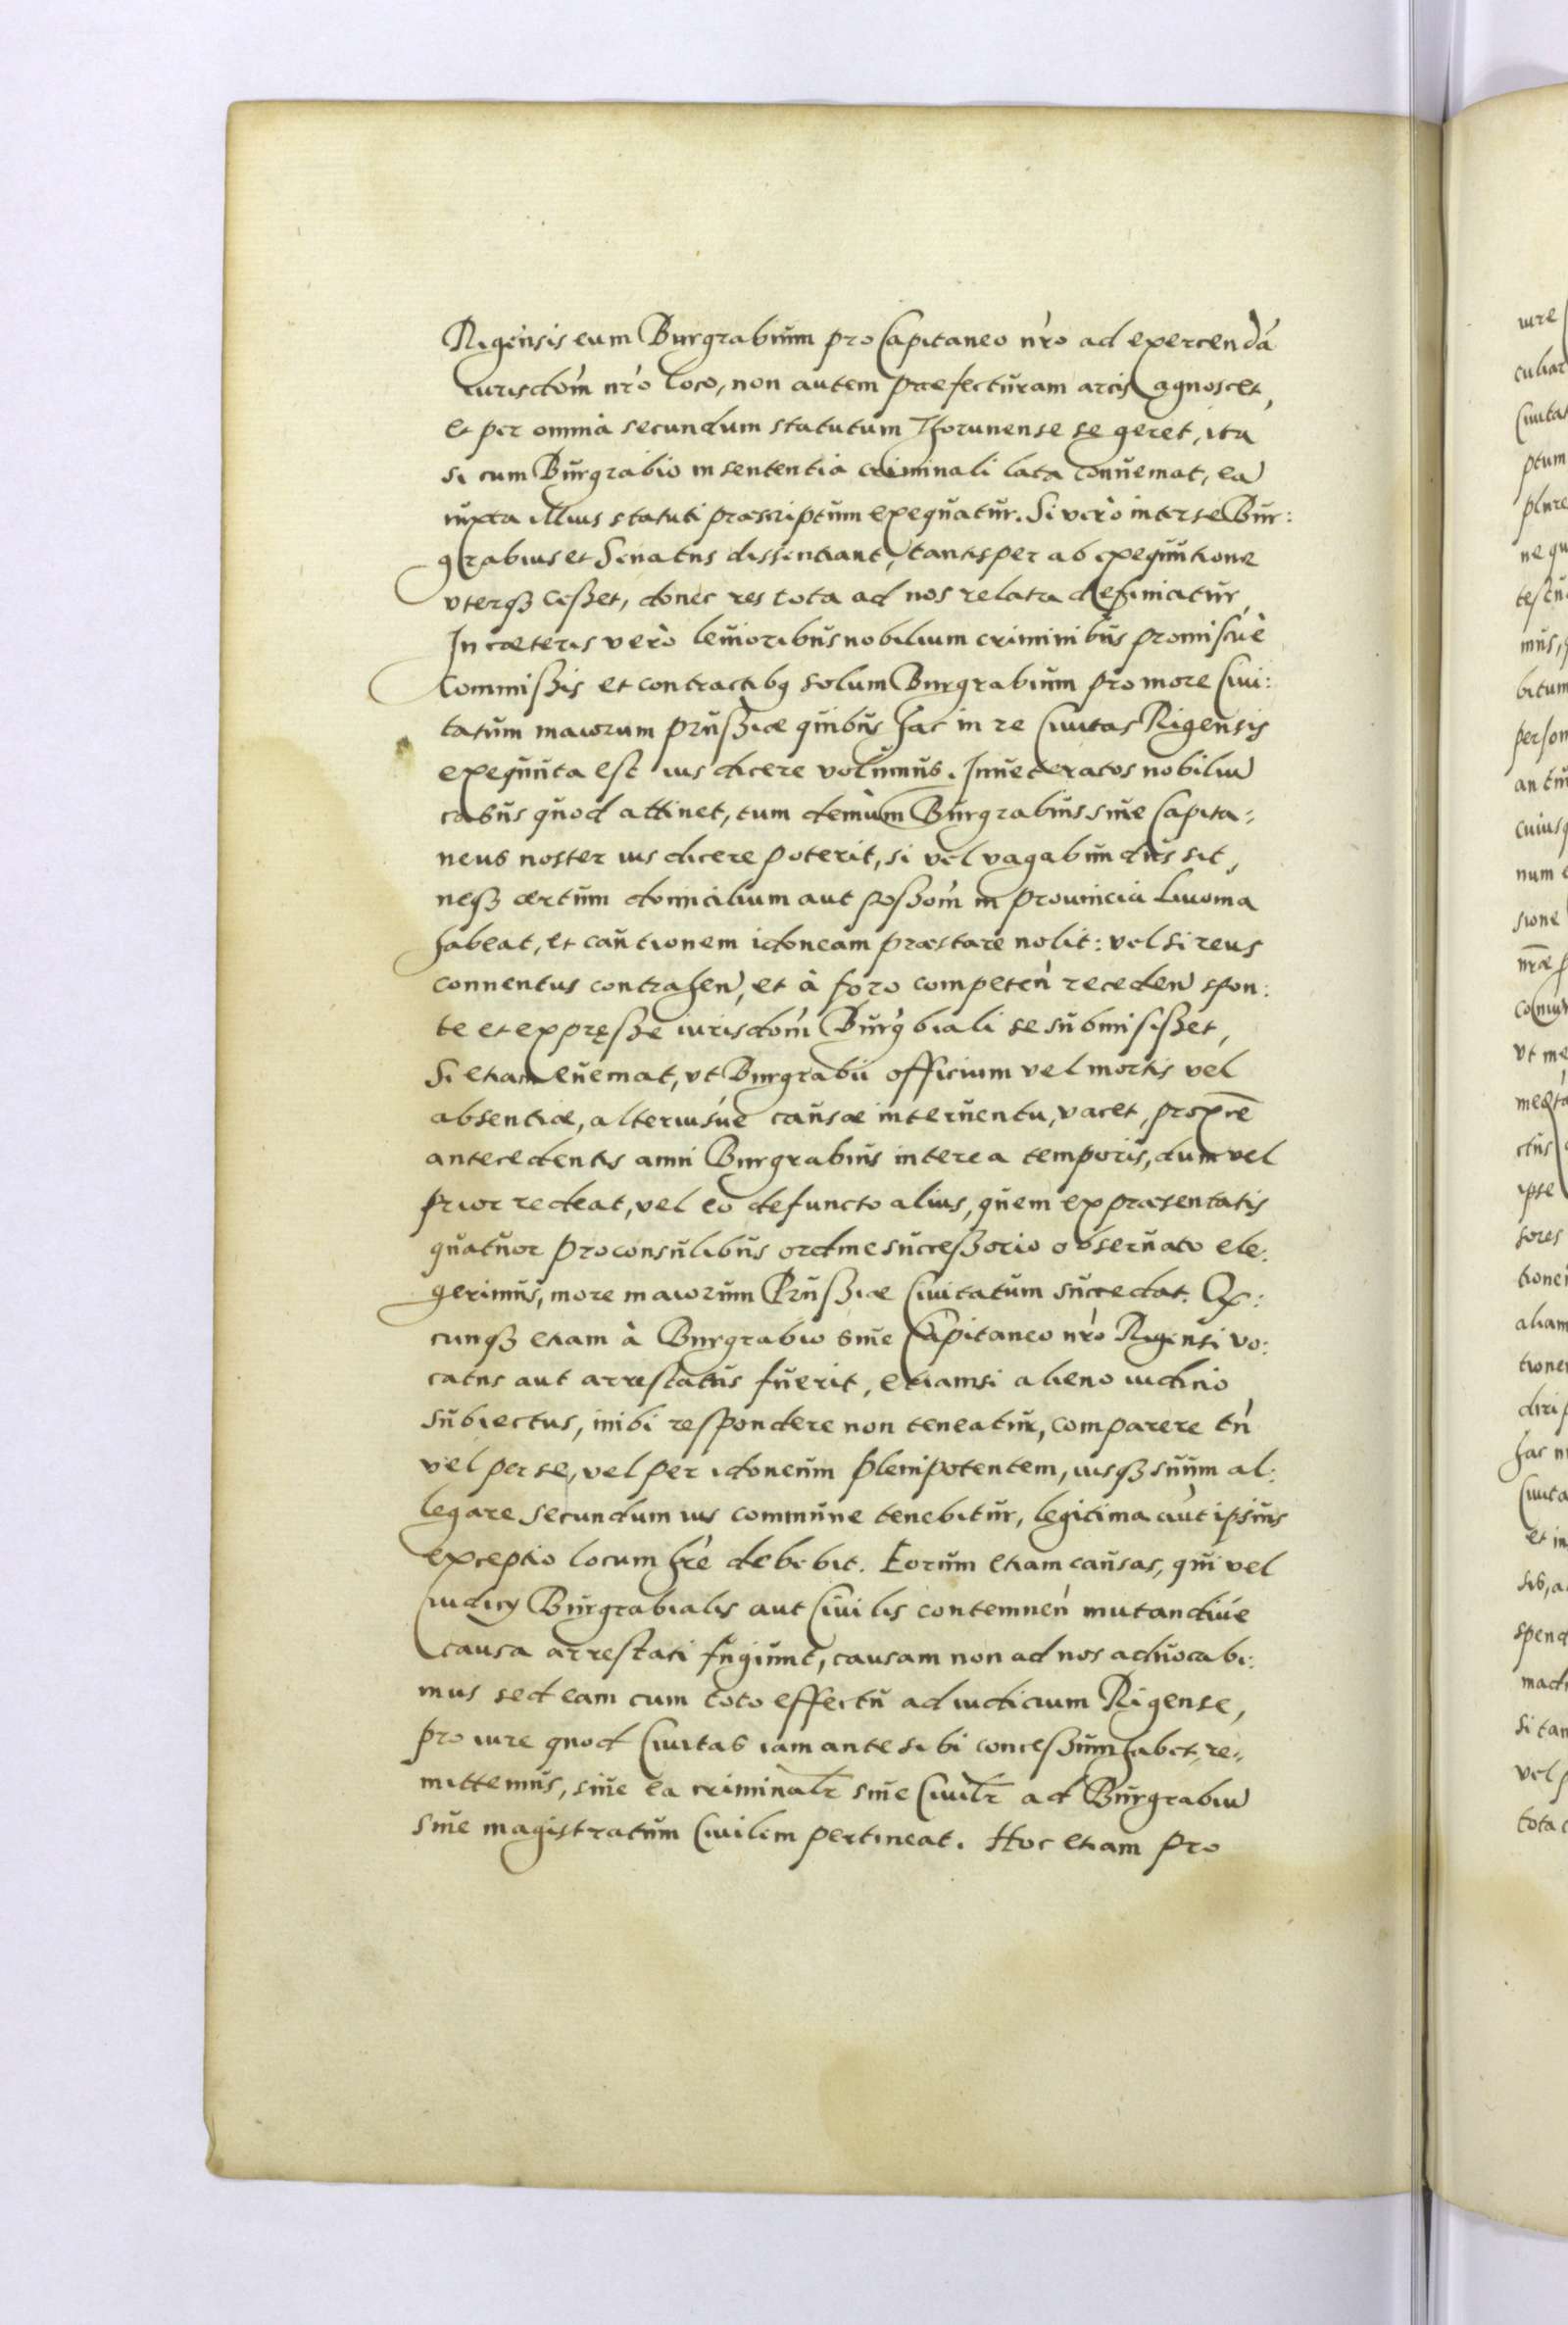 Rigensis eum Burgrabium pro Capitaneo nr̀o ad exercendā
iurisdom̀ nr̀o loco, non autem praefecturam arcis agnoscet,
et per omnia secundum statutum Thorunense se geret, ita
si cum Burgrabio in sententia criminali lata conueniat, ea
iuxta illius statuti praescriptum exequatur. Si verò inter se Bur:
grabius et Senatus dissentiant, tantisper ab exequutione
vterqȝ cesset, donec res tota ad nos relata definiatur,
In caeteris verò leuioribus nobilium criminibus promiscuè
Commissis et contractibꝫ solum Burgrabium pro more Ciui:
tatum maiorum Prussiae quibus hac in re Ciuitas Rigensis
exequuta est ius dicere volumus. Inueteratos nobiliū
casus quod attinet, tum demùm Burgrabius siue Capita:
neus noster ius dicere poterit, si vel vagabundus sit,
neqȝ certum domicilium aut possom̀ in prouincia Liuonia
habeat, et cautionem idoneam praestare nolit: vel si reus
conuentus contrahen̄, et à foro competen̄ receden̄ spon:
te et expręsse iurisdom̀ Burg̀biali se submisisset,
Si etiam eueniat, vt Burgrabii officium vel mortis vel
absentiae, alteriusue causae interuentu, vacet, proxe̅
antecedentis anni Burgrabius interea temporis, dum vel
prior redeat, vel eo defuncto alius, quem ex praesentatis
quatuor proconsulibus ordine successorio obseruato ele:
gerimus, more maiorum Prussiae Ciuitatum succedat. Q:
cunqȝ etiam à Burgrabio siue Capitaneo nr̀o Rigensi vo:
catus aut arrestatus fuerit, etiamsi alieno iudicio
subiectus, inibi respondere non teneatur, comparere tǹ
vel per se, vel per idoneum plenipotentem, iusqȝ suum al:
legare secundum ius commune tenebitur, legitima aut ipsius
exceptio locum hr̀e debebit. Eorum etiam causas, qui vel
iudicij Burgrabialis aut Ciuilis contemneǹ mutandiue
causa arrestati fugiunt, causam non ad nos aduocabi:
mus sed eam cum toto effectu ad iudicium Rigense,
pro iure quod Ciuitas iam ante sibi concessum habet, re:
mittemus, siue ea criminalr̄ siue Ciuilr̄ ad Burgrabiū
siue magistratum Ciuilem pertineat. Hoc etiam pro